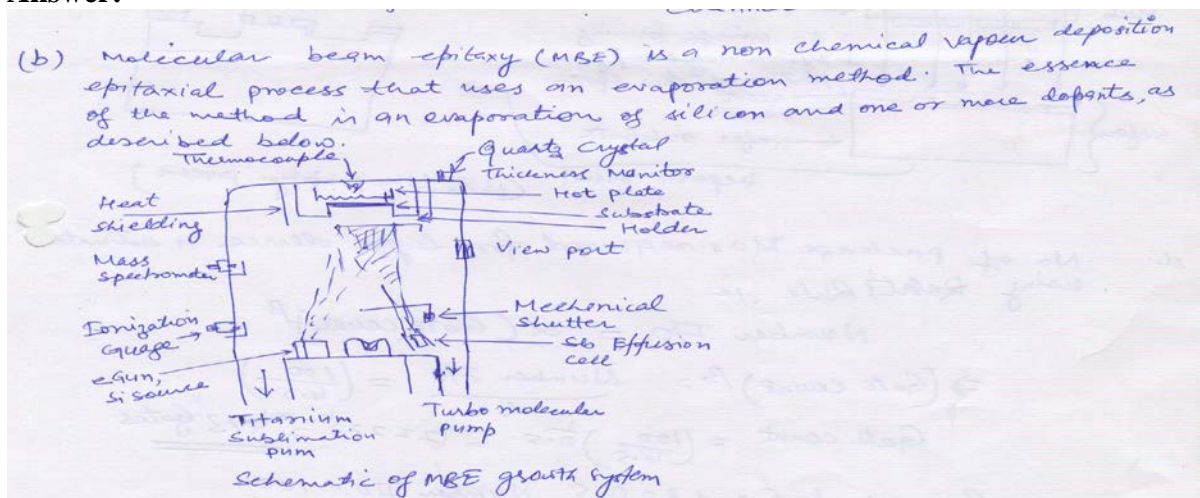 Answer:
(b) Molecular beam epitaxy (MBE) is a non chemical vapour deposition
epitaxial process that uses an evaporation method. The essence
of the method is an evaporation of silicon and one or more dopants, as
described below.
Thermocouple
Quartz Crystal
Thickness Monitor
Hot plate
Substrate
Holder
Heat
Shielding
View port
Mass
spectrometer
Mechenical
Shutter
Ionization
Guage
Sb Effusion
cell
eGun,
Si source
Titanium
Sublimation
pum
Turbo molecular
pump
Schematic of MBE growth system